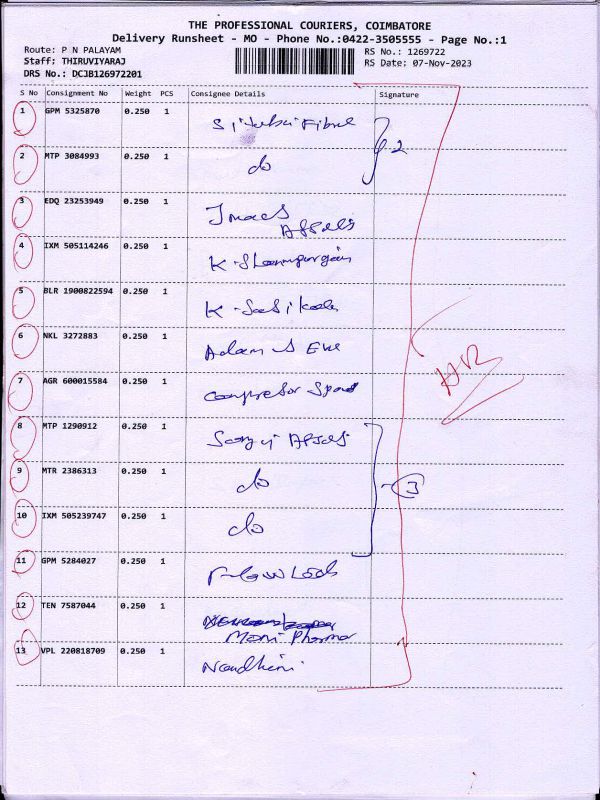 THE PROFESSIONAL COURIERS, COIMBATORE
Delivery Runsheet - MO - Phone No.:0422-3505555 - Page No.:1
Route: P N PALAYAM RS No.: 1269722
Staff: THIRUVIYARAJ RS Date: 07-Nov-2023
DRS No.: DCJB126972201
S No Consignment No Weight PCS Consignee Details Signature
1 GPM 5325870 0.250 1
2 MTP 3084993 0.250 1 do
2
3 EDQ 23253949 0.250 1
4 IXM 505114246 0.250 1 K.
5 BLR 1900822594 0.250 1 K.
6 NKL 3272883 0.250 1 Adam & Eve
7 AGR 600015584 0.250 1
8 MTP 1290912 0.250 1
9 MTR 2386313 0.250 1 do
3
10 IXM 505239747 0.250 1 do
11 GPM 5284027 0.250 1
12 TEN 7587044 0.250 1
Mani Pharma
13 VPL 220818709 0.250 1 Nandhini